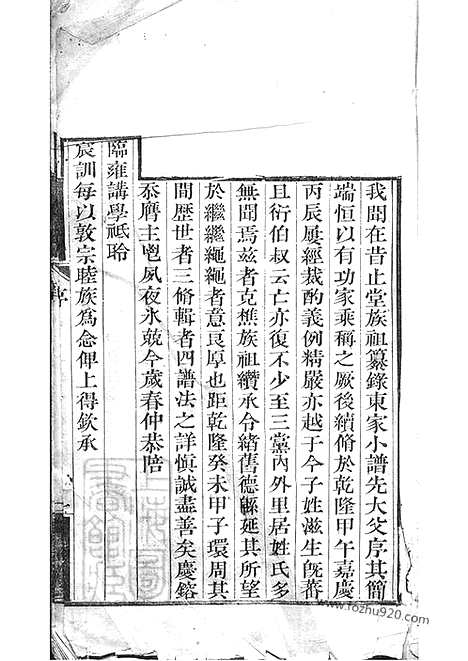 我聞在昔止堂族祖纂錄東家小譜先大父序其簡
端恒以有功家乘稱之厥後續脩於乾隆甲午嘉慶
丙辰屢經裁酌義例精嚴亦越于今子姓滋生旣蕃
且衍伯叔云亡亦復不少至三黨內外里居姓氏多
無聞焉茲者克樵族祖纘承令緒舊德緜延其所望
於繼繼繩繩者意良厚也距乾隆癸未甲子環周其
間歷世者三脩輯者四譜法之詳愼誠盡善矣慶鎔
忝膺主鬯夙夜氷兢今歲春仲恭陪
臨雍講學祗聆
宸訓每以敦宗睦族爲念俾上得欽承
序
www.fozhu920.com